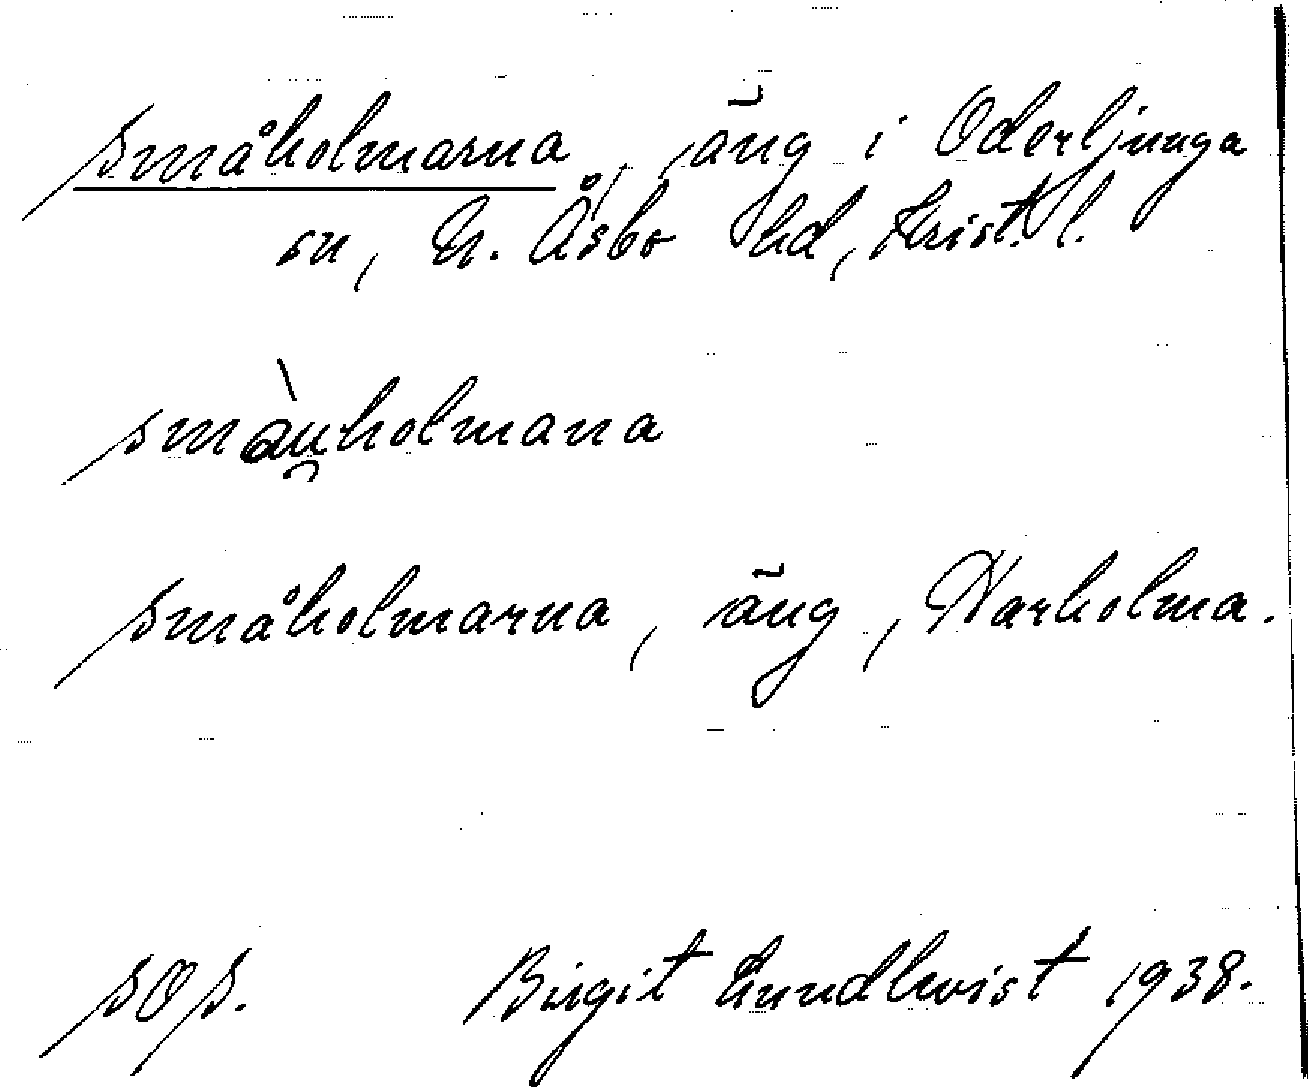 Småholmarna, äng i Oderljunga
sn, N. Åsbo hd, Krist. l.
smàu̯holmana
Småholmarna, äng, Varholma.
sos. Birgit Lundkvist 1938.